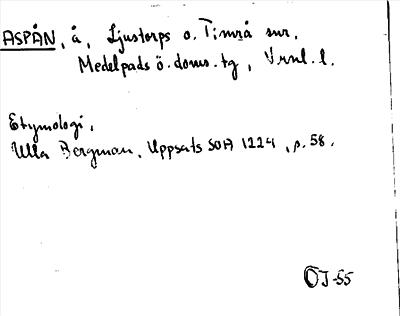 ASPÅN, å, Ljustorps o. Timrå snr,
Medelpads ö. doms. tg, Vrnl. l.
Etymologi,
Ulla Bergman, Uppsats SOA 1224, p. 58.
ÖJ-55